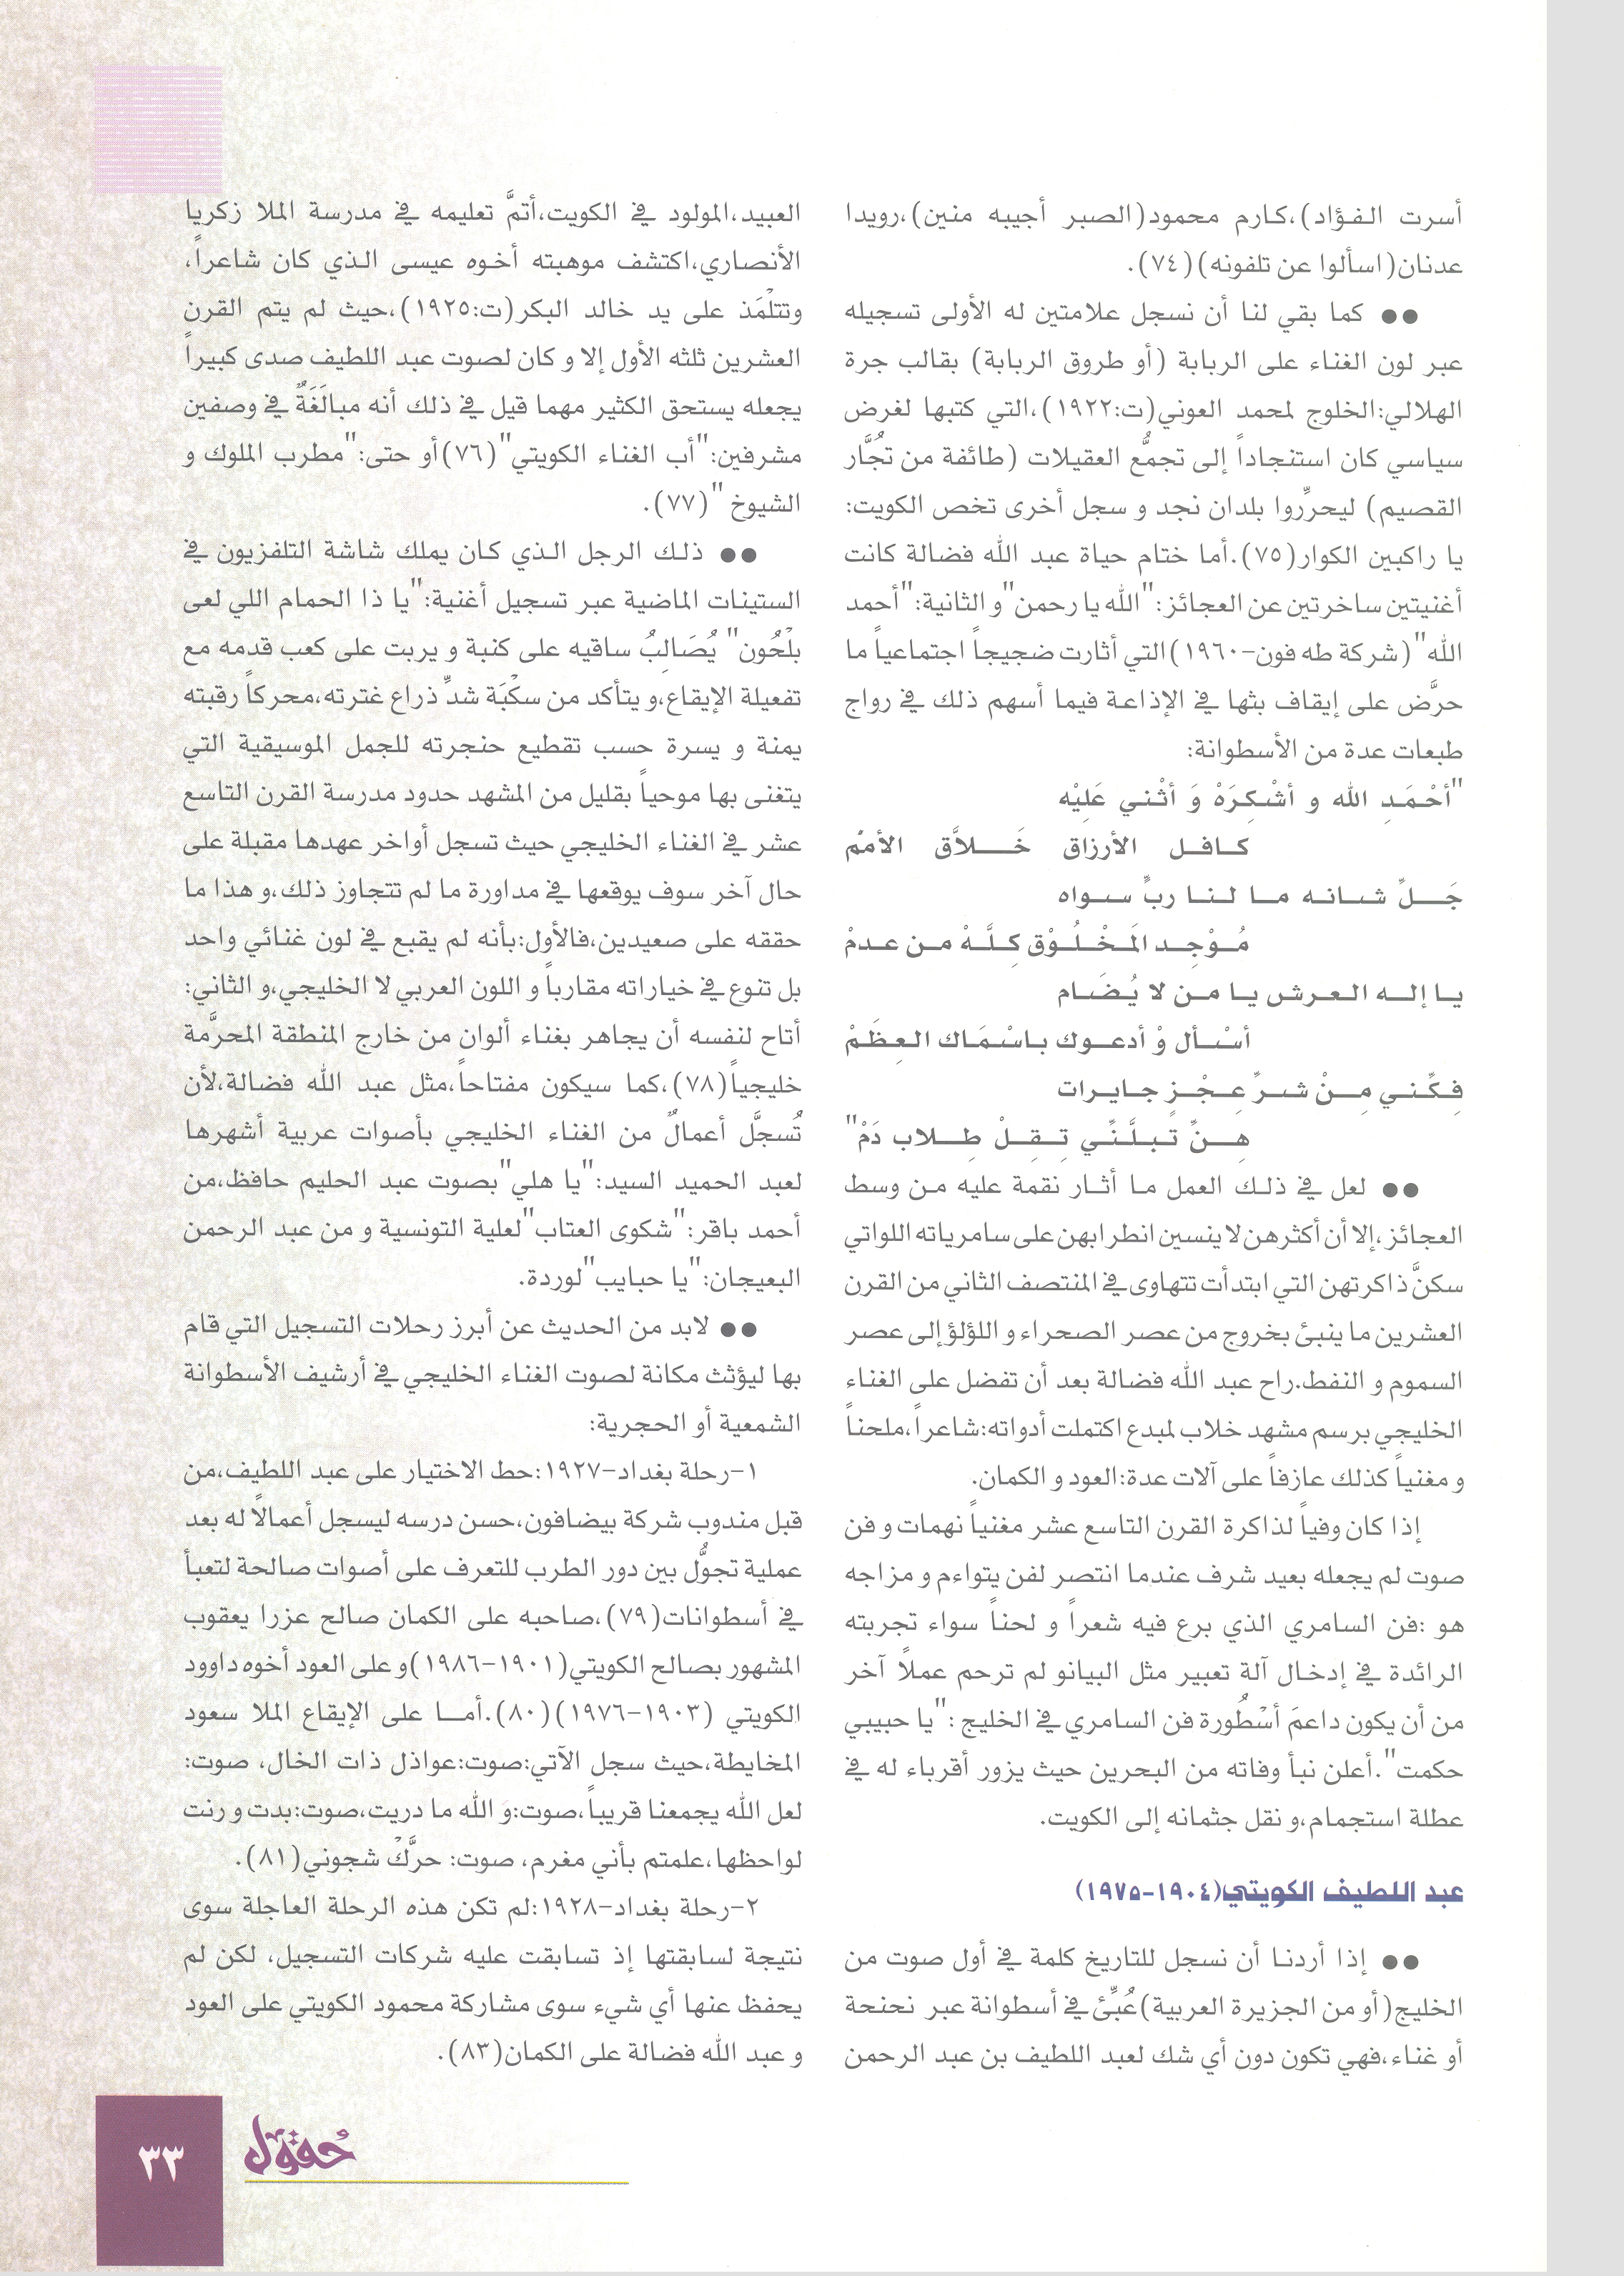 أسرت الفؤاد)،كارم محمود(الصبر أجيبه منين)،رويدا
عدنان(اسألوا عن تلفونه)(٧٤).
●● كما بقي لنا أن نسجل علامتين له الأولى تسجيله
عبر لون الغناء على الربابة (أو طروق الربابة) بقالب جرة
الهلالي:الخلوج لمحمد العوني(ت:١٩٢٢)،التي كتبها لغرض
سياسي كان استنجاداً إلى تجمُّع العقيلات (طائفة من تُجَّار
القصيم) ليحررِّوا بلدان نجد و سجل أخرى تخص الكويت:
يا راكبين الكوار(٧٥).أما ختام حياة عبد الله فضالة كانت
أغنيتين ساخرتين عن العجائز:"الله يا رحمن"و الثانية:"أحمد
الله"(شركة طه فون-١٩٦٠)التي أثارت ضجيجاً اجتماعياً ما
حرَّض على إيقاف بثها في الإذاعة فيما أسهم ذلك في رواج
طبعات عدة من الأسطوانة:
"أحْمَدِ الله و أشْكِرَهْ وَ أثْني عَلِيْه
كافل الأرزاق خَلاَّق الأممْ
جَلِّ شانه ما لنا ربٍّ سواه
مُوْجِد المَخْلُوْق كِلَّهْ من عدمْ
يا إله العرش يا من لا يُضَام
أسْأل وْ أدعوك باسْمَاك العِظَمْ
فِكِّني مِنْ شرِّ عِجْزٍ جايرات
هِنِّ تبلَّنِّي تِقِلْ طِلاب دَمْ"
●● لعل في ذلك العمل ما أثار نقمة عليه من وسط
العجائز،إلا أن أكثرهن لا ينسين انطرابهن على سامرياته اللواتي
سكنَّ ذاكرتهن التي ابتدأت تتهاوى في المنتصف الثاني من القرن
العشرين ما ينبئ بخروج من عصر الصحراء و اللؤلؤ إلى عصر
السموم و النفط.راح عبد الله فضالة بعد أن تفضل على الغناء
الخليجي برسم مشهد خلاب لمبدع اكتملت أدواته:شاعراً،ملحناً
و مغنياً كذلك عازفاً على آلات عدة:العود و الكمان.
إذا كان وفياً لذاكرة القرن التاسع عشر مغنياً نهمات و فن
صوت لم يجعله بعيد شرف عندما انتصر لفن يتواءم و مزاجه
هو :فن السامري الذي برع فيه شعراً و لحناً سواء تجربته
الرائدة في إدخال آلة تعبير مثل البيانو لم ترحم عملاً آخر
من أن يكون داعمَ أسْطُورة فن السامري في الخليج :"يا حبيبي
حكمت".أعلن نبأ وفاته من البحرين حيث يزور أقرباء له في
عطلة استجمام،و نقل جثمانه إلى الكويت.
عبد اللطيف الكويتي(١٩٠٤-١٩٧٥)
●● إذا أردنا أن نسجل للتاريخ كلمة في أول صوت من
الخليج(أو من الجزيرة العربية)عُبِّئ في أسطوانة عبر نحنحة
أو غناء،فهي تكون دون أي شك لعبد اللطيف بن عبد الرحمن
العبيد،المولود في الكويت،أتمَّ تعليمه في مدرسة الملا زكريا
الأنصاري،اكتشف موهبته أخوه عيسى الذي كان شاعراً،
وتتلْمَذ على يد خالد البكر(ت:١٩٢٥)،حيث لم يتم القرن
العشرين ثلثه الأول إلا و كان لصوت عبد اللطيف صدى كبيراً
يجعله يستحق الكثير مهما قيل في ذلك أنه مبالَغَةٌ في وصفين
مشرفين:"أب الغناء الكويتي"(٧٦)أو حتى:"مطرب الملوك و
الشيوخ "(٧٧).
●● ذلك الرجل الذي كان يملك شاشة التلفزيون في
الستينات الماضية عبر تسجيل أغنية:"يا ذا الحمام اللي لعى
بلْحُون" يُصَالِبُ ساقيه على كنبة و يربت على كعب قدمه مع
تفعيلة الإيقاع،و يتأكد من سكْبَة شدِّ ذراع غترته،محركاً رقبته
يمنة و يسرة حسب تقطيع حنجرته للجمل الموسيقية التي
يتغنى بها موحياً بقليل من المشهد حدود مدرسة القرن التاسع
عشر في الغناء الخليجي حيث تسجل أواخر عهدها مقبلة على
حال آخر سوف يوقعها في مداورة ما لم تتجاوز ذلك،و هذا ما
حققه على صعيدين،فالأول:بأنه لم يقبع في لون غنائي واحد
بل تنوع في خياراته مقارباً و اللون العربي لا الخليجي،و الثاني:
أتاح لنفسه أن يجاهر بغناء ألوان من خارج المنطقة المحرَّمة
خليجياً(٧٨)،كما سيكون مفتاحاً،مثل عبد الله فضالة،لأن
تُسجَّل أعمالٌ من الغناء الخليجي بأصوات عربية أشهرها
لعبد الحميد السيد:"يا هلي"بصوت عبد الحليم حافظ،من
أحمد باقر:"شكوى العتاب"لعلية التونسية و من عبد الرحمن
البعيجان:"يا حبايب"لوردة.
●● لابد من الحديث عن أبرز رحلات التسجيل التي قام
بها ليؤثث مكانة لصوت الغناء الخليجي في أرشيف الأسطوانة
الشمعية أو الحجرية:
١-رحلة بغداد-١٩٢٧:حط الاختيار على عبد اللطيف،من
قبل مندوب شركة بيضافون،حسن درسه ليسجل أعمالاً له بعد
عملية تجوُّل بين دور الطرب للتعرف على أصوات صالحة لتعبأ
في أسطوانات(٧٩)،صاحبه على الكمان صالح عزرا يعقوب
المشهور بصالح الكويتي(١٩٠١-١٩٨٦)و على العود أخوه داوود
الكويتي (١٩٠٣-١٩٧٦)(٨٠).أما على الإيقاع الملا سعود
المخايطة،حيث سجل الآتي:صوت:عواذل ذات الخال، صوت:
لعل الله يجمعنا قريباً،صوت:وَ الله ما دريت،صوت:بدت و رنت
لواحظها،علمتم بأني مغرم، صوت: حرَّكْ شجوني(٨١).
٢-رحلة بغداد-١٩٢٨:لم تكن هذه الرحلة العاجلة سوى
نتيجة لسابقتها إذ تسابقت عليه شركات التسجيل، لكن لم
يحفظ عنها أي شيء سوى مشاركة محمود الكويتي على العود
و عبد الله فضالة على الكمان(٨٣).
حقول
٣٣